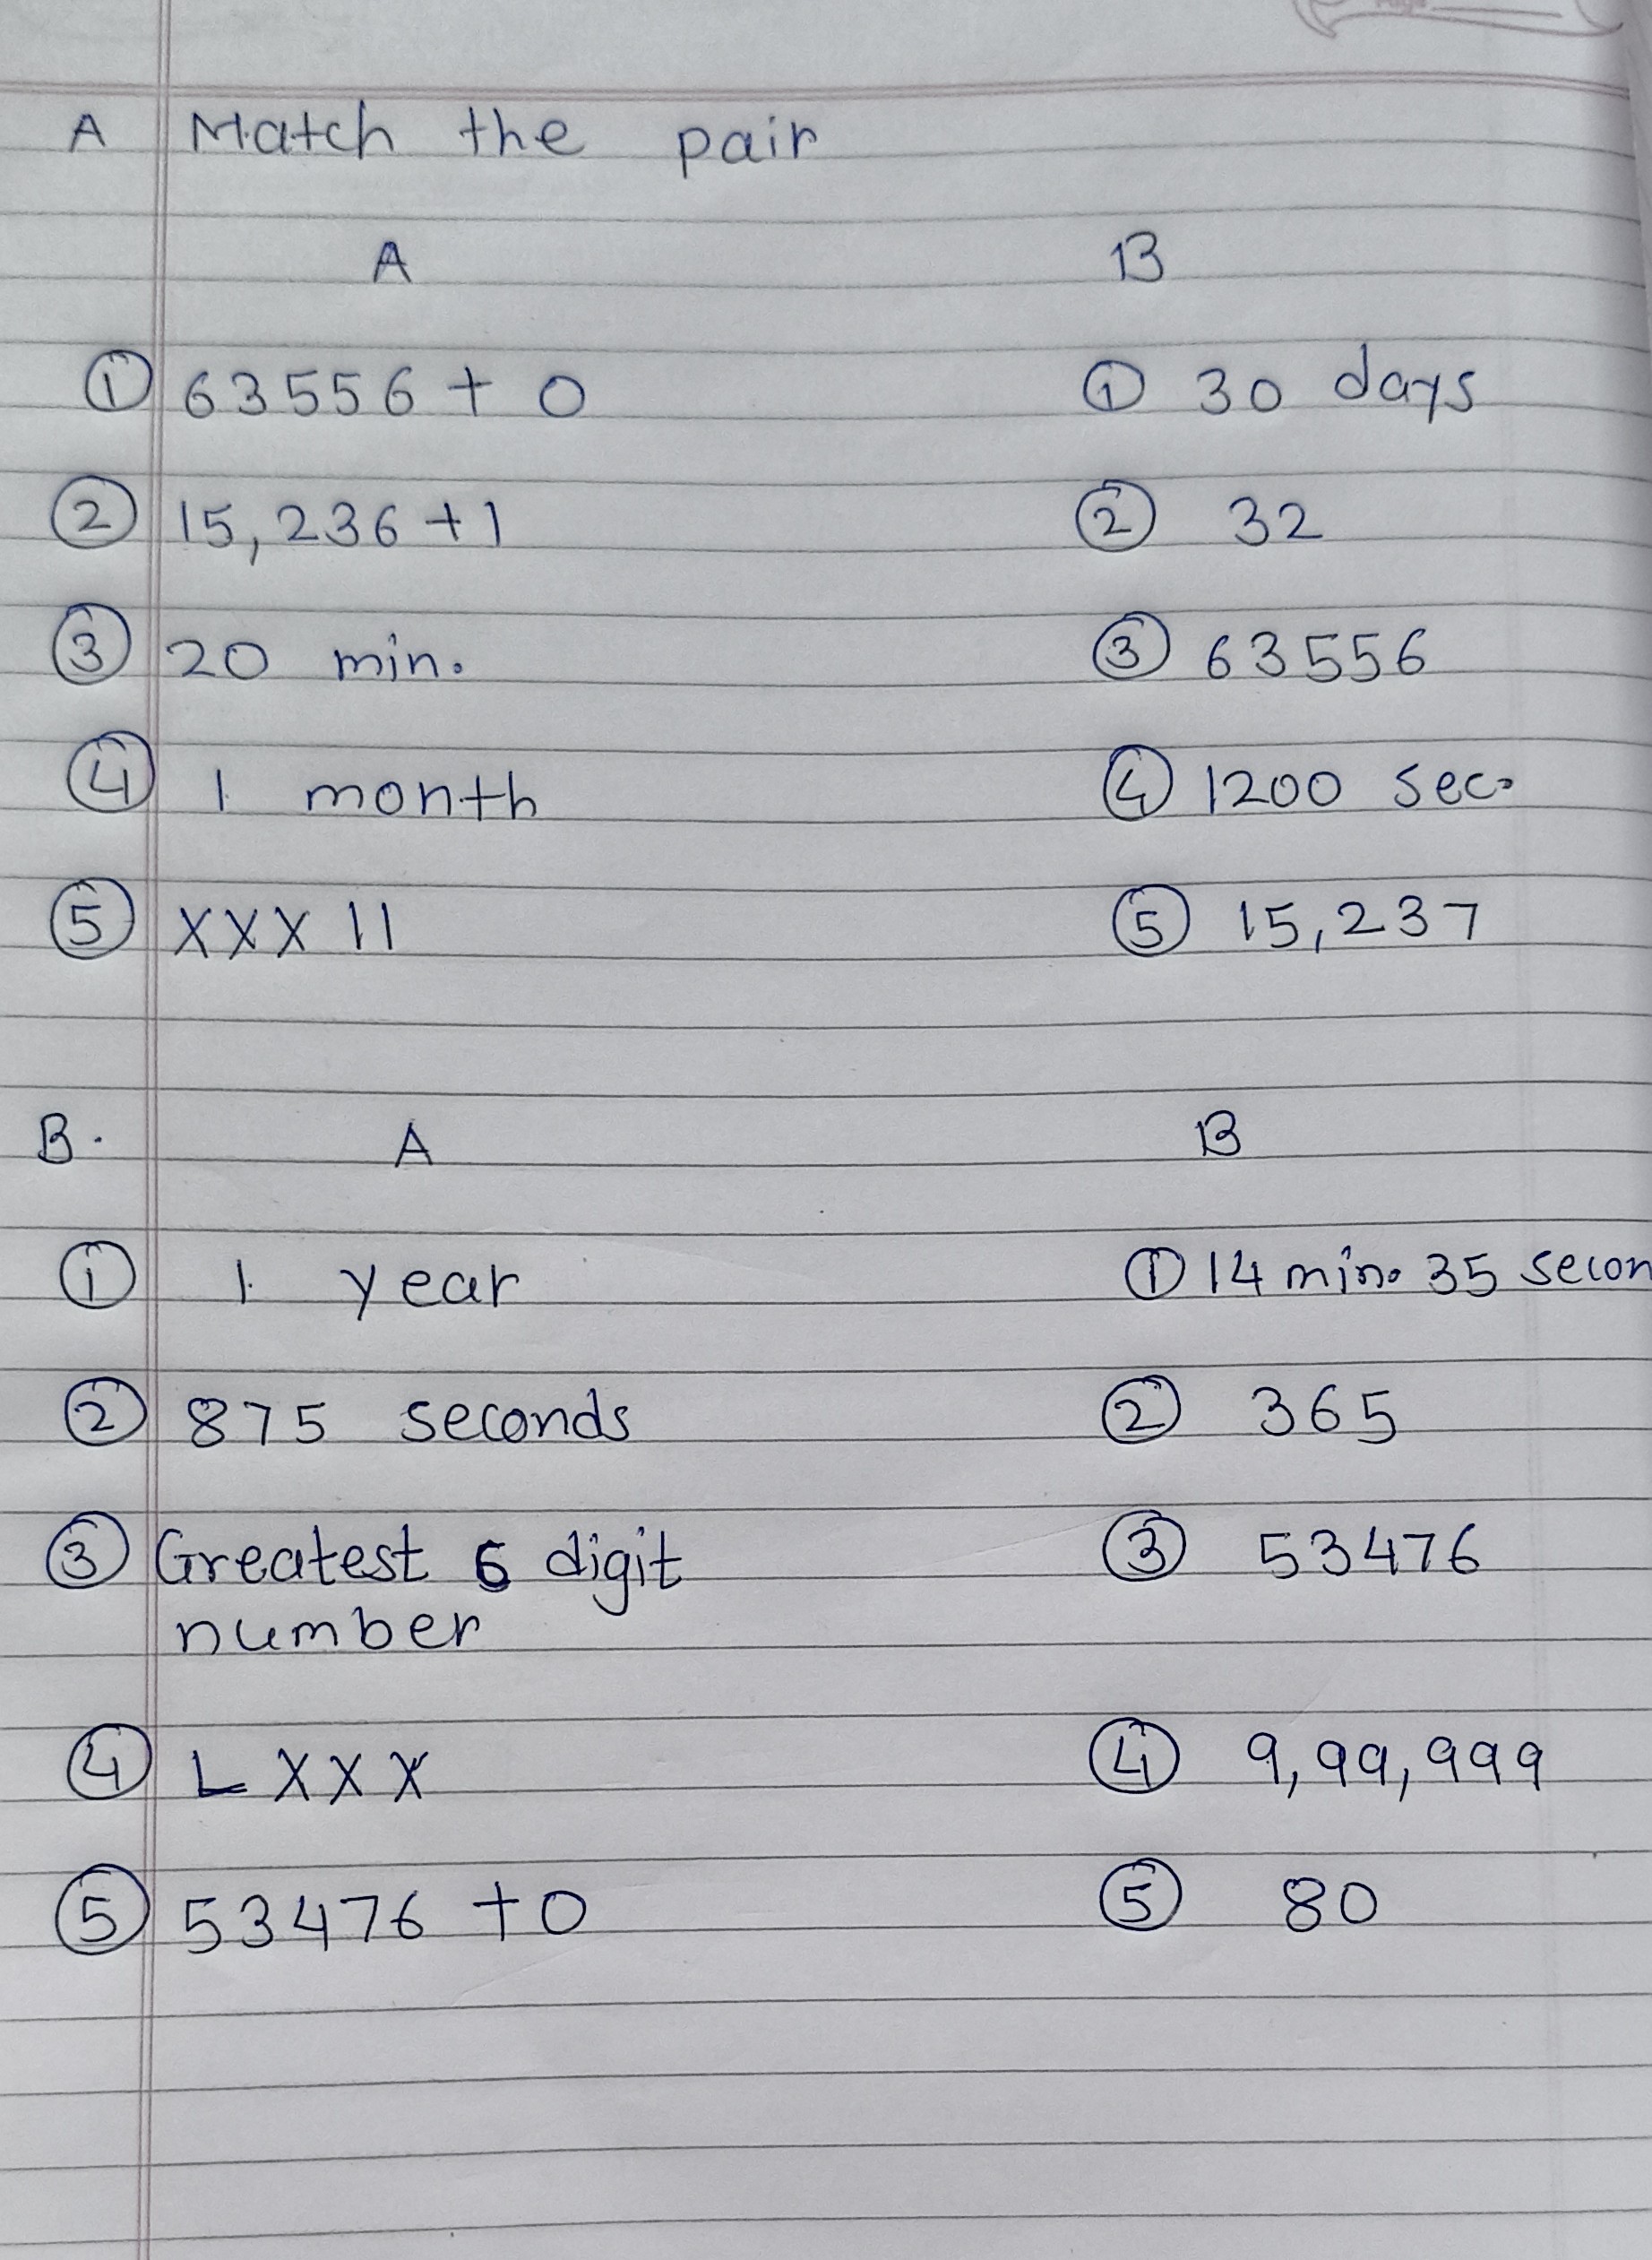 A Match the pair
A B
① 63556 + 0 ① 30 days
② 15,236 + 1 ② 32
③ 20 min. ③ 63556
④ 1 month ④ 1200 sec.
⑤ XXX II ⑤ 15,237
B. A B
① 1 year ① 14 min. 35 secon
② 875 seconds ② 365
③ Greatest 6 digit ③ 53476
number
④ L X X X ④ 9,99,999
⑤ 53476 + 0 ⑤ 80